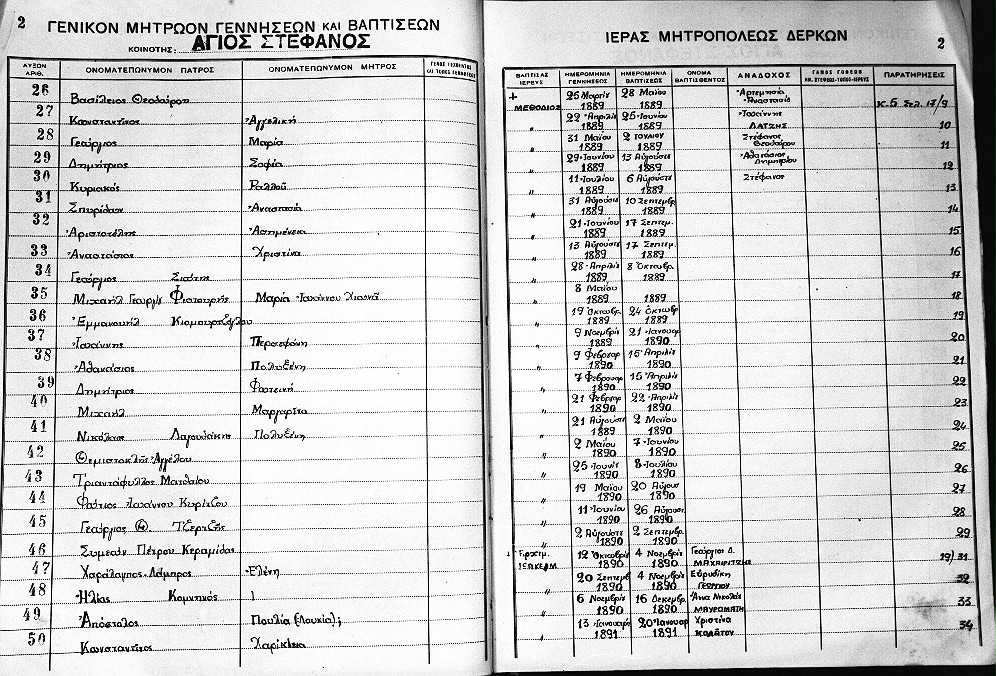 2
ΓΕΝΙΚΟΝ ΜΗΤΡΩΟΝ ΓΕΝΝΗΣΕΩΝ ΚΑΙ ΒΑΠΤΙΣΕΩΝ
ΚΟΙΝΟΤΗΣ: ΑΓΙΟΣ ΣΤΕΦΑΝΟΣ
ΑΥΞΩΝ ΑΡΙΘ. ΟΝΟΜΑΤΕΠΩΝΥΜΟΝ ΠΑΤΡΟΣ ΟΝΟΜΑΤΕΠΩΝΥΜΟΝ ΜΗΤΡΟΣ
26 Βασίλειος Θεοδώρου
27 Κωνσταντίνος Ἀγγελική
28 Γεώργιος Μαρία
29 Δημήτριος Σοφία
30 Κυριακός Ραλλού
31 Σπυρίδων Ἀναστασία
32 Ἀριστοτέλης Ἀσημένεια
33 Ἀναστάσιος Χριστίνα
34 Γεώργιος
35 Μιχαήλ Γεωργ. Μαρία Ἰωάννου
36 Ἐμμανουήλ
37 Ἰωάννης Περσεφόνη
38 Ἀθανάσιος Πολυξένη
39 Δημήτριος Φωτεινή
40 Μιχαήλ Μαργαρίτα
41 Νικόλαος Λαγουδάκης Πολυξένη
42 Θεμιστοκλῆς Ἀγγέλου
43 Τριαντάφυλλος Ματθαίου
44 Φώτιος Ἰωάννου
45 Γεώργιος Θ.
46 Συμεών Πέτρου Κεραμίδας
47 Χαράλαμπος Λάμπρος Ἑλένη
48 Ἠλίας Κομνηνός
49 Ἀπόστολος Πουλία (Λουκία);
50 Κωνσταντίνος Χαρίκλεια
ΙΕΡΑΣ ΜΗΤΡΟΠΟΛΕΩΣ ΔΕΡΚΩΝ
2
ΒΑΠΤΙΣΑΣ ΙΕΡΕΥΣ ΗΜΕΡΟΜΗΝΙΑ ΓΕΝΝΗΣΕΩΣ ΗΜΕΡΟΜΗΝΙΑ ΒΑΠΤΙΣΕΩΣ ΟΝΟΜΑ ΒΑΠΤΙΣΘΕΝΤΟΣ ΑΝΑΔΟΧΟΣ ΓΑΜΟΣ ΓΟΝΕΩΝ ΠΑΡΑΤΗΡΗΣΕΙΣ
+ ΜΕΘΟΔΙΟΣ 25 Μαρτίυ 1889 28 Μαΐου 1889 Ἀρτεμησία Ἀναστασίυ Κ.5 Σελ. 17/9
〃 22 Ἀπριλίυ 1889 25 Ἰουνίου 1889 Ἰωάννης ΛΑΤΖΗΣ 10
〃 31 Μαΐου 1889 2 ΙΟΥΛΙΟΥ 1889 Στέφανος Θεοδώρου 11
〃 29 Ἰουνίου 1889 13 Αὐγούστυ 1889 Ἀθανάσιος Δημητρίου 12
〃 11 Ἰουλίου 1889 6 Αὐγούστυ 1889 Στέφανος 13
〃 31 Αὐγούστυ 1889 10 Σεπτεμβρ. 1889 14
〃 21 Ἰουνίου 1889 17 Σεπτεμ. 1889 15
〃 13 Αὐγούστυ 1889 17 Σεπτεμ. 1889 16
〃 28 Ἀπριλίυ 1889 8 Ὀκτωβρ. 1889 17
〃 8 Μαΐου 1889 1889 18
〃 19 Ὀκτωβρ. 1889 24 Ὀκτωβρ 1889 19
〃 9 Νοεμβρίυ 1889 21 Ἰανουαρ 1890 20
〃 9 Φεβρουαρ 1890 15 Ἀπριλίυ 1890 21
〃 7 Φεβρουαρ 1890 15 Ἀπριλίυ 1890 22
〃 21 Φεβρουαρ 1890 22 Ἀπριλίυ 1890 23
〃 21 Αὐγούστυ 1889 2 Μαΐου 1890 24
〃 2 Μαΐου 1890 7 Ἰουνίου 1890 25
〃 25 Ἰουνίυ 1890 8 Ἰουλίου 1890 26
〃 19 Μαΐου 1890 20 Αὐγουσ 1890 27
〃 11 Ἰουνίου 1890 26 Αὐγουσ. 1890 28
〃 2 Αὐγούστυ 1890 2 Σεπτεμβρ. 1890 29
12 Ὀκτωβρίυ 1890 4 Νοεμβρίυ 1890 Γεώργιος Δ. 19/31
〃 20 Σεπτεμβ 1890 4 Νοεμβρίυ 1890 Εὐρυδίκη ΓΕΩΡΓΙΟΥ 32
〃 6 Νοεμβρίυ 1890 16 Δεκεμβρ. 1890 Ἄννα Νικολάυ ΜΑΥΡΟΜΑΤΗ 33
〃 13 Ἰανουαρίυ 1891 20 Ἰανουαρ 1891 Χριστίνα 34